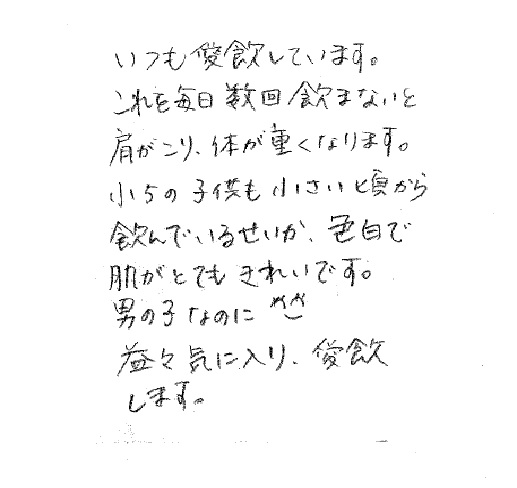 いつも愛飲しています。
これを毎日数回飲まないと
肩がこり、体が重くなります。
小5の子供も小さい頃から
飲んでいるせいか、色白で
肌がとてもきれいです。
男の子なのに ^^
益々気に入り、愛飲
します。